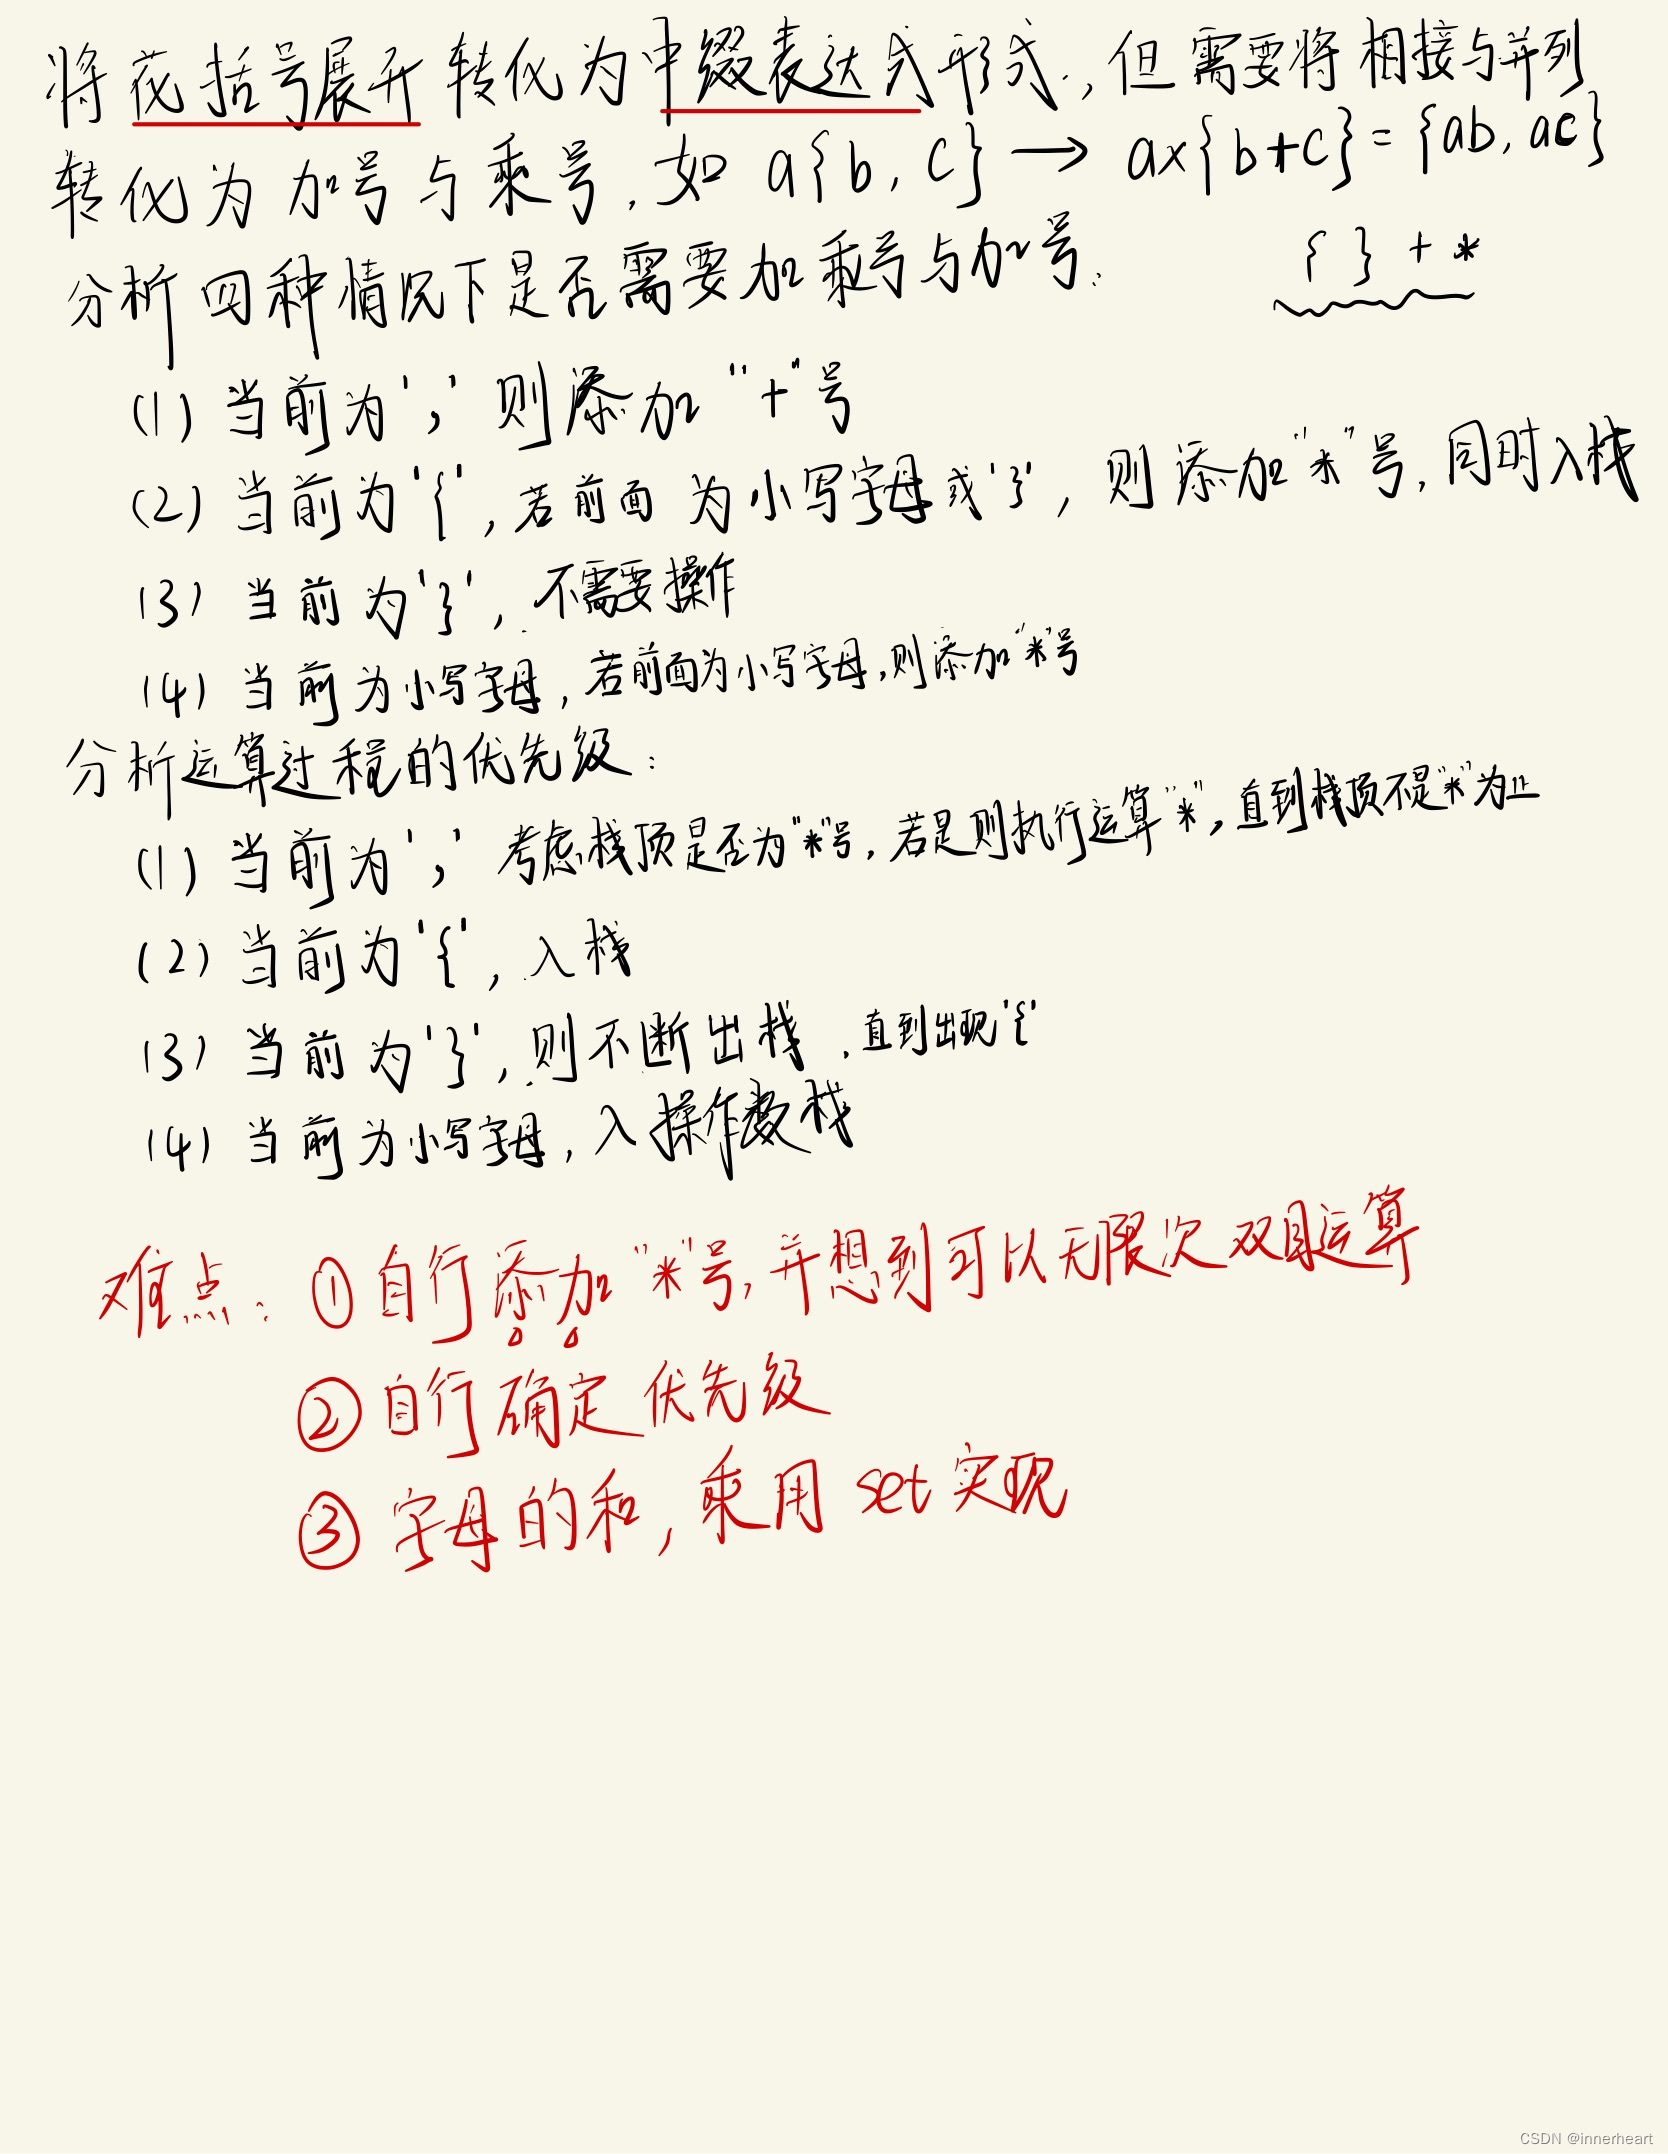 将花括号展开转化为中缀表达式形式.,但需要将相接与并列
转化为加号与乘号,如 a{b,c} → ax{b+c}={ab,ac}
分析四种情况下是否需要加乘号与加号:
{ } + *
(1)当前为',' 则添加"+"号
(2)当前为'{',若前面为小写字母或'}',则添加"*"号,同时入栈
(3)当前为'}',不需要操作
(4)当前为小写字母,若前面为小写字母,则添加"*"号
分析运算过程的优先级:
(1)当前为',' 考虑栈顶是否为"*"号,若是则执行运算"*",直到栈顶不是"*"为止
(2)当前为'{',入栈
(3)当前为'}',则不断出栈,直到出现'{'
(4)当前为小写字母,入操作数栈
难点:①自行添加"*"号,并想到可以无限次双目运算
②自行确定优先级
③字母的和,乘用set实现
CSDN @innerheart